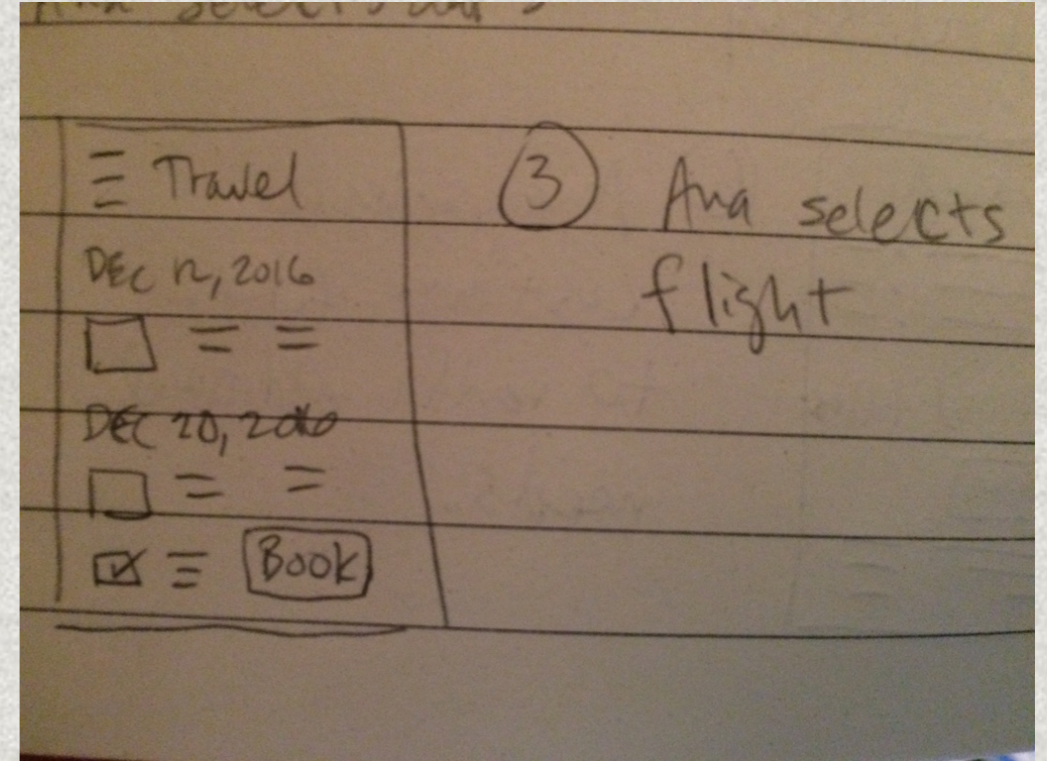 Ana selects
Travel
DEC 12, 2016
DEC 20, 2016
Book
3 Ana selects
flight